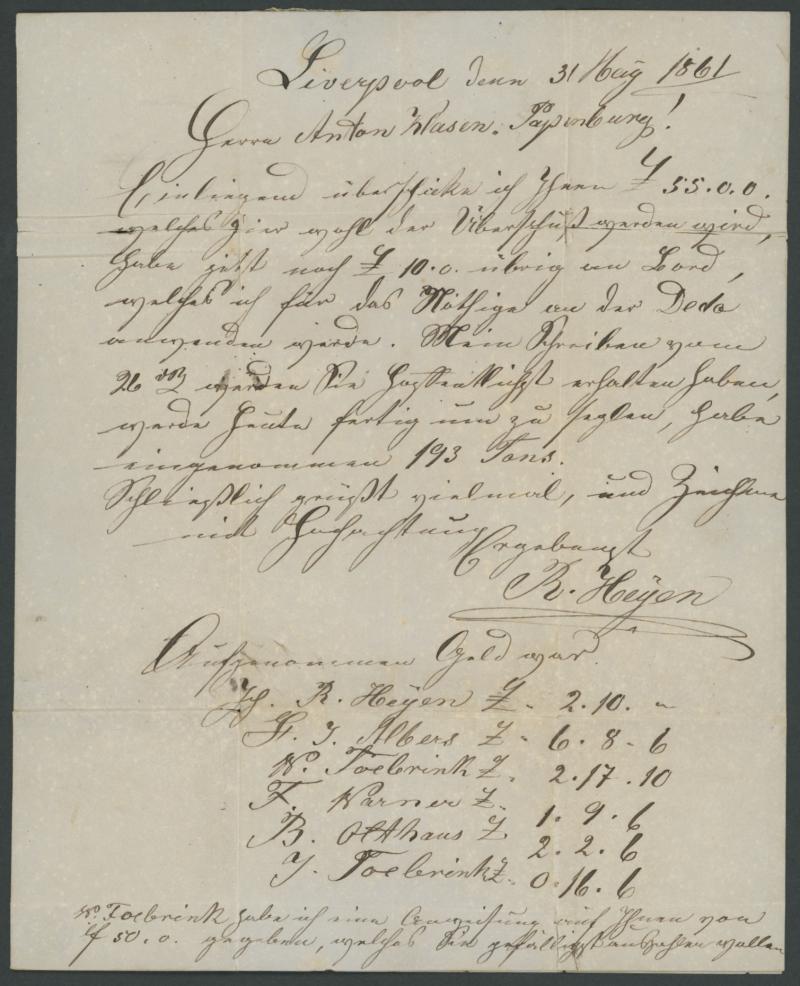 Liverpool denn 31 May 1861
Herrn Anton Wasen. Papenburg!
Einliegend überschicke ich Ihnen £ 55.0.0.
welches hier wohl der Überschuß werden wird,
habe jetzt noch £ 10.0. übrig an Bord,
welches ich für das Nöthige an der
anwenden werde. Mein Schreiben vom
26 werden Sie hoffentlichst erhalten haben,
werde heute fertig um zu seglen, habe
eingenommen 193 Tons.
Schließlich grüßt vielmal, und Zeichne
mit Hochachtung
Ergebenst
R. Heÿen
Aufgenommen Geld war.
H. R. Heÿen £ - 2.10. -
H. J. Albers £ - 6 - 8 - 6
W. Toebrink £. 2.17.10
F. Warner £. 1. 9. 6
B. Olthaus £ 2. 2. 6
J. Toebrink £. 0.16.6
W. Toebrink habe ich eine Anweisung auf Ihnen von
f 50.0. gegeben, welches Sie gefälligst auszahlen wollen